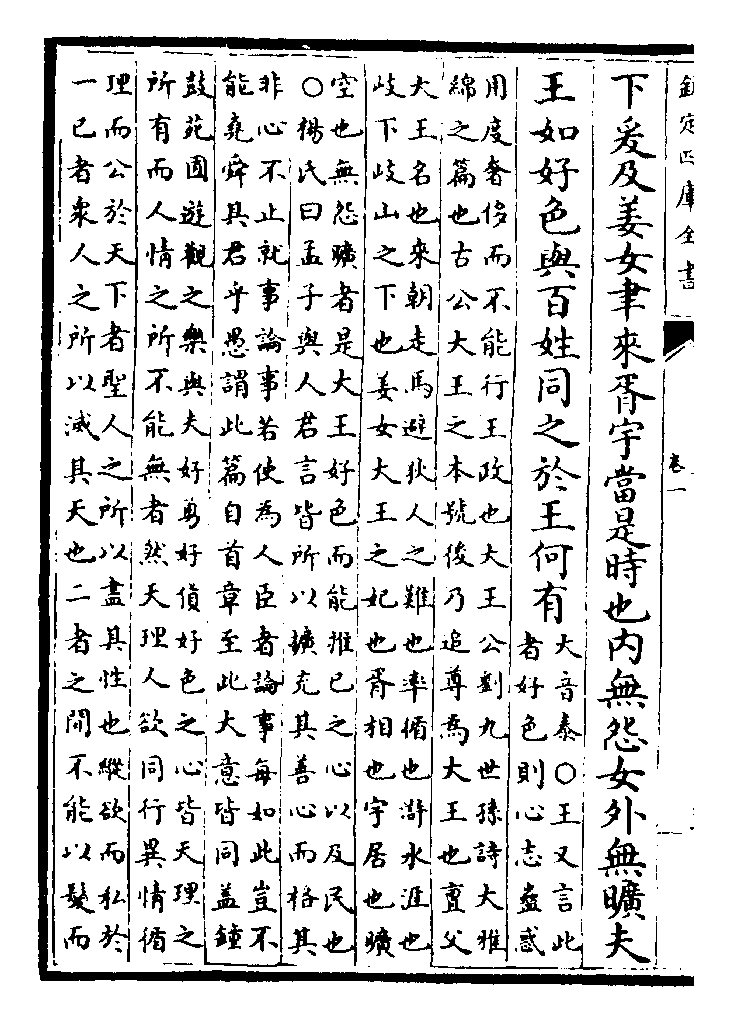 欽定四庫全書
卷一
下爰及姜女聿來胥宇當是時也内無怨女外無曠夫
王如好色與百姓同之於王何有
大音泰○王又言此
者好色則心志蠱惑
用度奢侈而不能行王政也大王公劉九世孫詩大雅
綿之篇也古公大王之本號後乃追尊為大王也亶父
大王名也來朝走馬避狄人之難也率循也滸水涯也
岐下岐山之下也姜女大王之妃也胥相也宇居也曠
空也無怨曠者是大王好色而能推已之心以及民也
○楊氏曰孟子與人君言皆所以擴充其善心而格其
非心不止就事論事若使為人臣者論事每如此豈不
能堯舜其君乎愚謂此篇自首章至此大意皆同葢鐘
鼓苑囿遊觀之樂與夫好勇好貨好色之心皆天理之
所有而人情之所不能無者然天理人欲同行異情循
理而公於天下者聖人之所以盡其性也縱欲而私於
一已者衆人之所以滅其天也二者之間不能以髮而